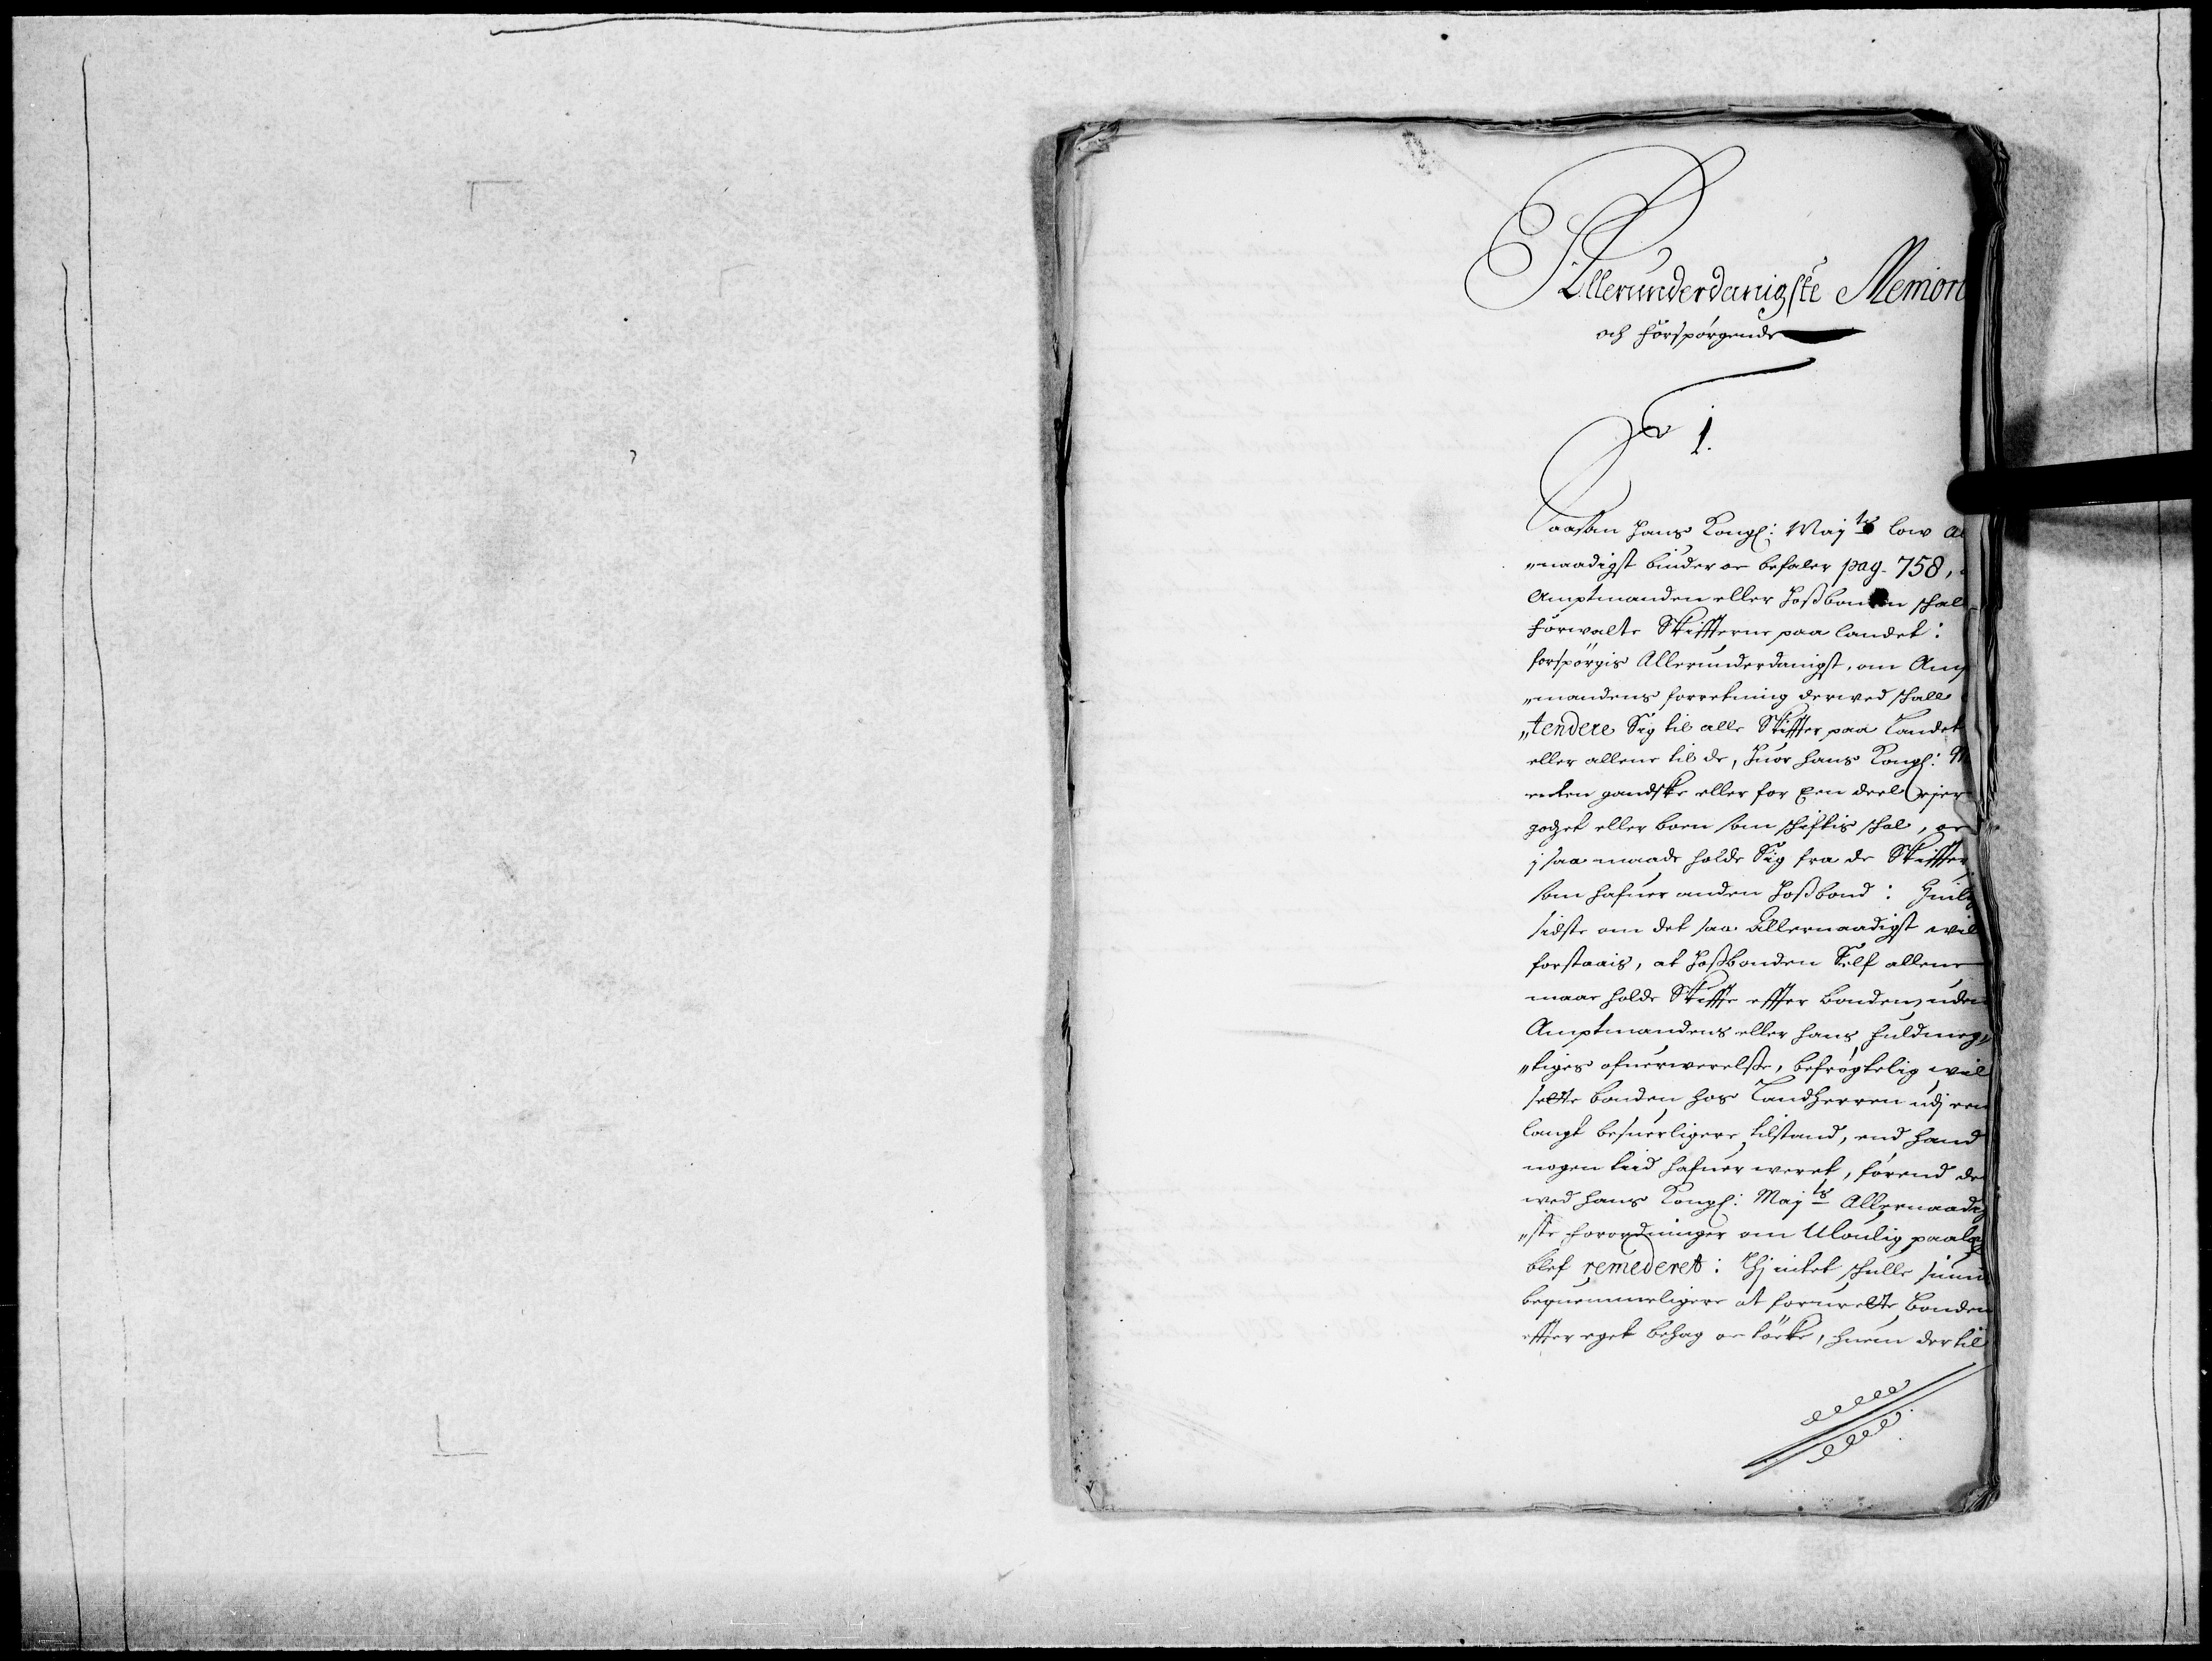 Allerunderdanigste Memori
och forspörgende
1.
Saasom hans Kongl: Maÿts low al
„naadigst biuder oc befaler pag. 758,
Amptmanden eller Hoßbonden schal
forwalte Skiffterne paa landet:
forspörgis Allerunderdanigst, om Amp
„mandens forretning derwed schall
„tendere Sig til alle Skiffter paa Landet
eller allene til de, huor hans Kongl: M
enten gandske eller for Een deel ejer
godzet eller boen som schiftis schal, oc
j saa maade holde Sig fra de Skiffter
som hafuer anden Hoßbond: Huilc
sidste om det saa allernaadigst wil
forstaais, at Hoßbonden Self allene
maae holde Skiffte effter bonden, uden
Amptmandens eller hans fuldmeg„
„tiges ofuerwerelsse, befrögtelig wil
sette bonden hos Landherren udj een
langt besuerligere tilstand, end hand
nogen tiid hafuer weret, förend de
wed hans Kongl: Maÿts Allernaadig
„ste forordninger om Ulowlig paalæg
blef remederet: Thj intet schulle siun
bequemmeligere at foruelte bonden
effter eget behag oc tücke, huem der til